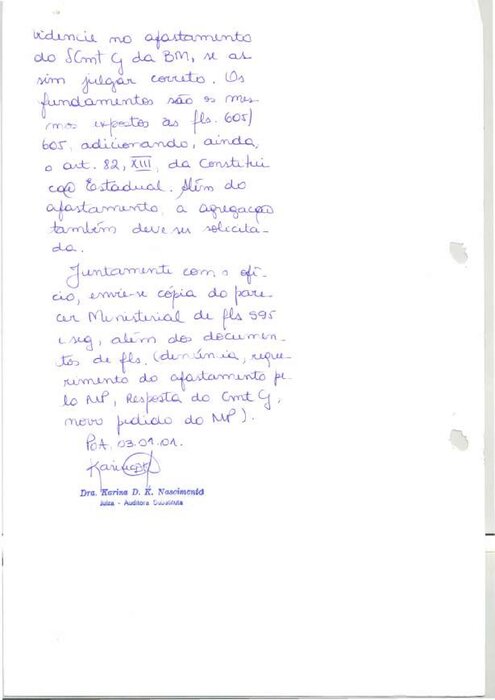 videncie no afastamento
do SCmt G da BM, se as
sim julgar correto. Os
fundamentos são os mes
mos expostos às fls. 605/
605, adicionando, ainda,
o art. 82, XIII, da Constitui
ção Estadual. Além do
afastamento, a agregação
também deve ser solicita-
da.
Juntamente com o ofí-
cio, envie-se cópia do pare
cer Ministerial de fls 595
e seg, além dos documen-
tos de fls. (denúncia, reque-
rimento do afastamento pe-
lo MP, Resposta do Cmt G,
novo pedido do MP).
POA. 03.01.01.
Dra. Karina D. K. Nascimento
Juíza - Auditora Substituta